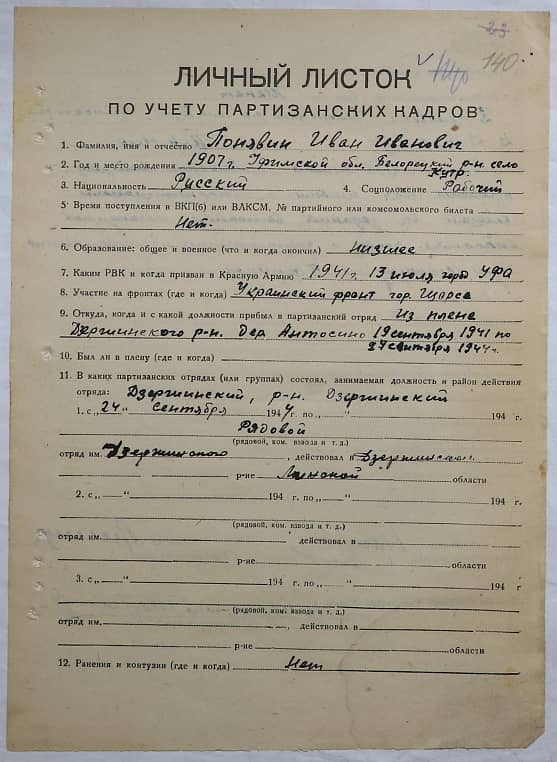 23
140
ЛИЧНЫЙ ЛИСТОК
ПО УЧЕТУ ПАРТИЗАНСКИХ КАДРОВ
1. Фамилия, имя и отчество Понявин Иван Иванович
2. Год и место рождения 1907г. Уфимской обл. Белорецкий р-н. село
Кутр.
3. Национальность Русский 4. Соцположение Рабочий
5. Время поступления в ВКП(б) или ВЛКСМ, № партийного или комсомольского билета
Нет.
6. Образование: общее и военное (что и когда окончил) низшее
7. Каким РВК и когда призван в Красную Армию 1941г. 13 июля город УФА
8. Участие на фронтах (где и когда) Украинский фронт гор.
9. Откуда, когда и с какой должности прибыл в партизанский отряд Из плена
Дзержинского р-н. дер. Антосино 19 сентября 1941 по
сентября 1944г.
10. Был ли в плену (где и когда)
11. В каких партизанских отрядах (или группах) состоял, занимаемая должность и район действия
отряда: Дзержинский, р-н. Дзержинский
1. с „24“ сентября 194 г. по „ “ 194 г.
Рядовой
(рядовой, ком. взвода и т. д.)
отряд им. Дзержинского, действовал в Дзержинском
р-не Минской области
2. с „ “ 194 г. по „ “ 194 г.
(рядовой, ком. взвода и т. д.)
отряд им. , действовал в
р-не области
3. с „ “ 194 г. по „ “ 194 г
(рядовой, ком. взвода и т. д.)
отряд им. , действовал в
р-не области
12. Ранения и контузии (где и когда) Нет